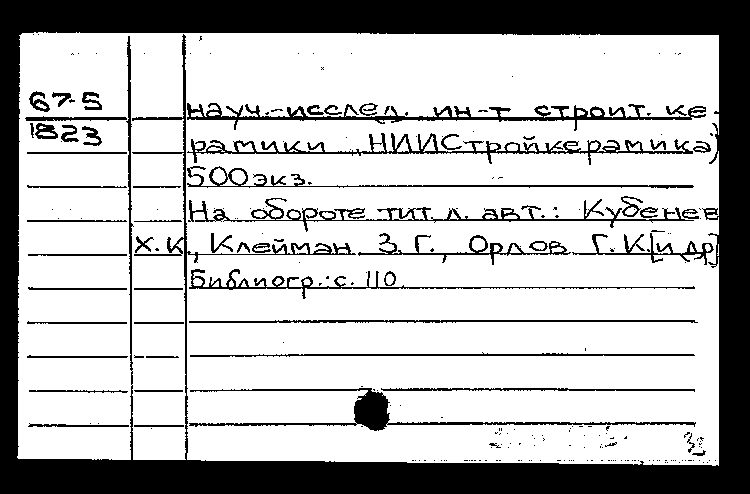 67-5
1823
науч.-исслед. ин-т строит. ке-
рамики "НИИСтройкерамика)
500 экз.
На обороте тит. л. авт.: Кубенев
Х.К., Клейман З.Г., Орлов Г.К. [и др]
Библиогр.: с. 110